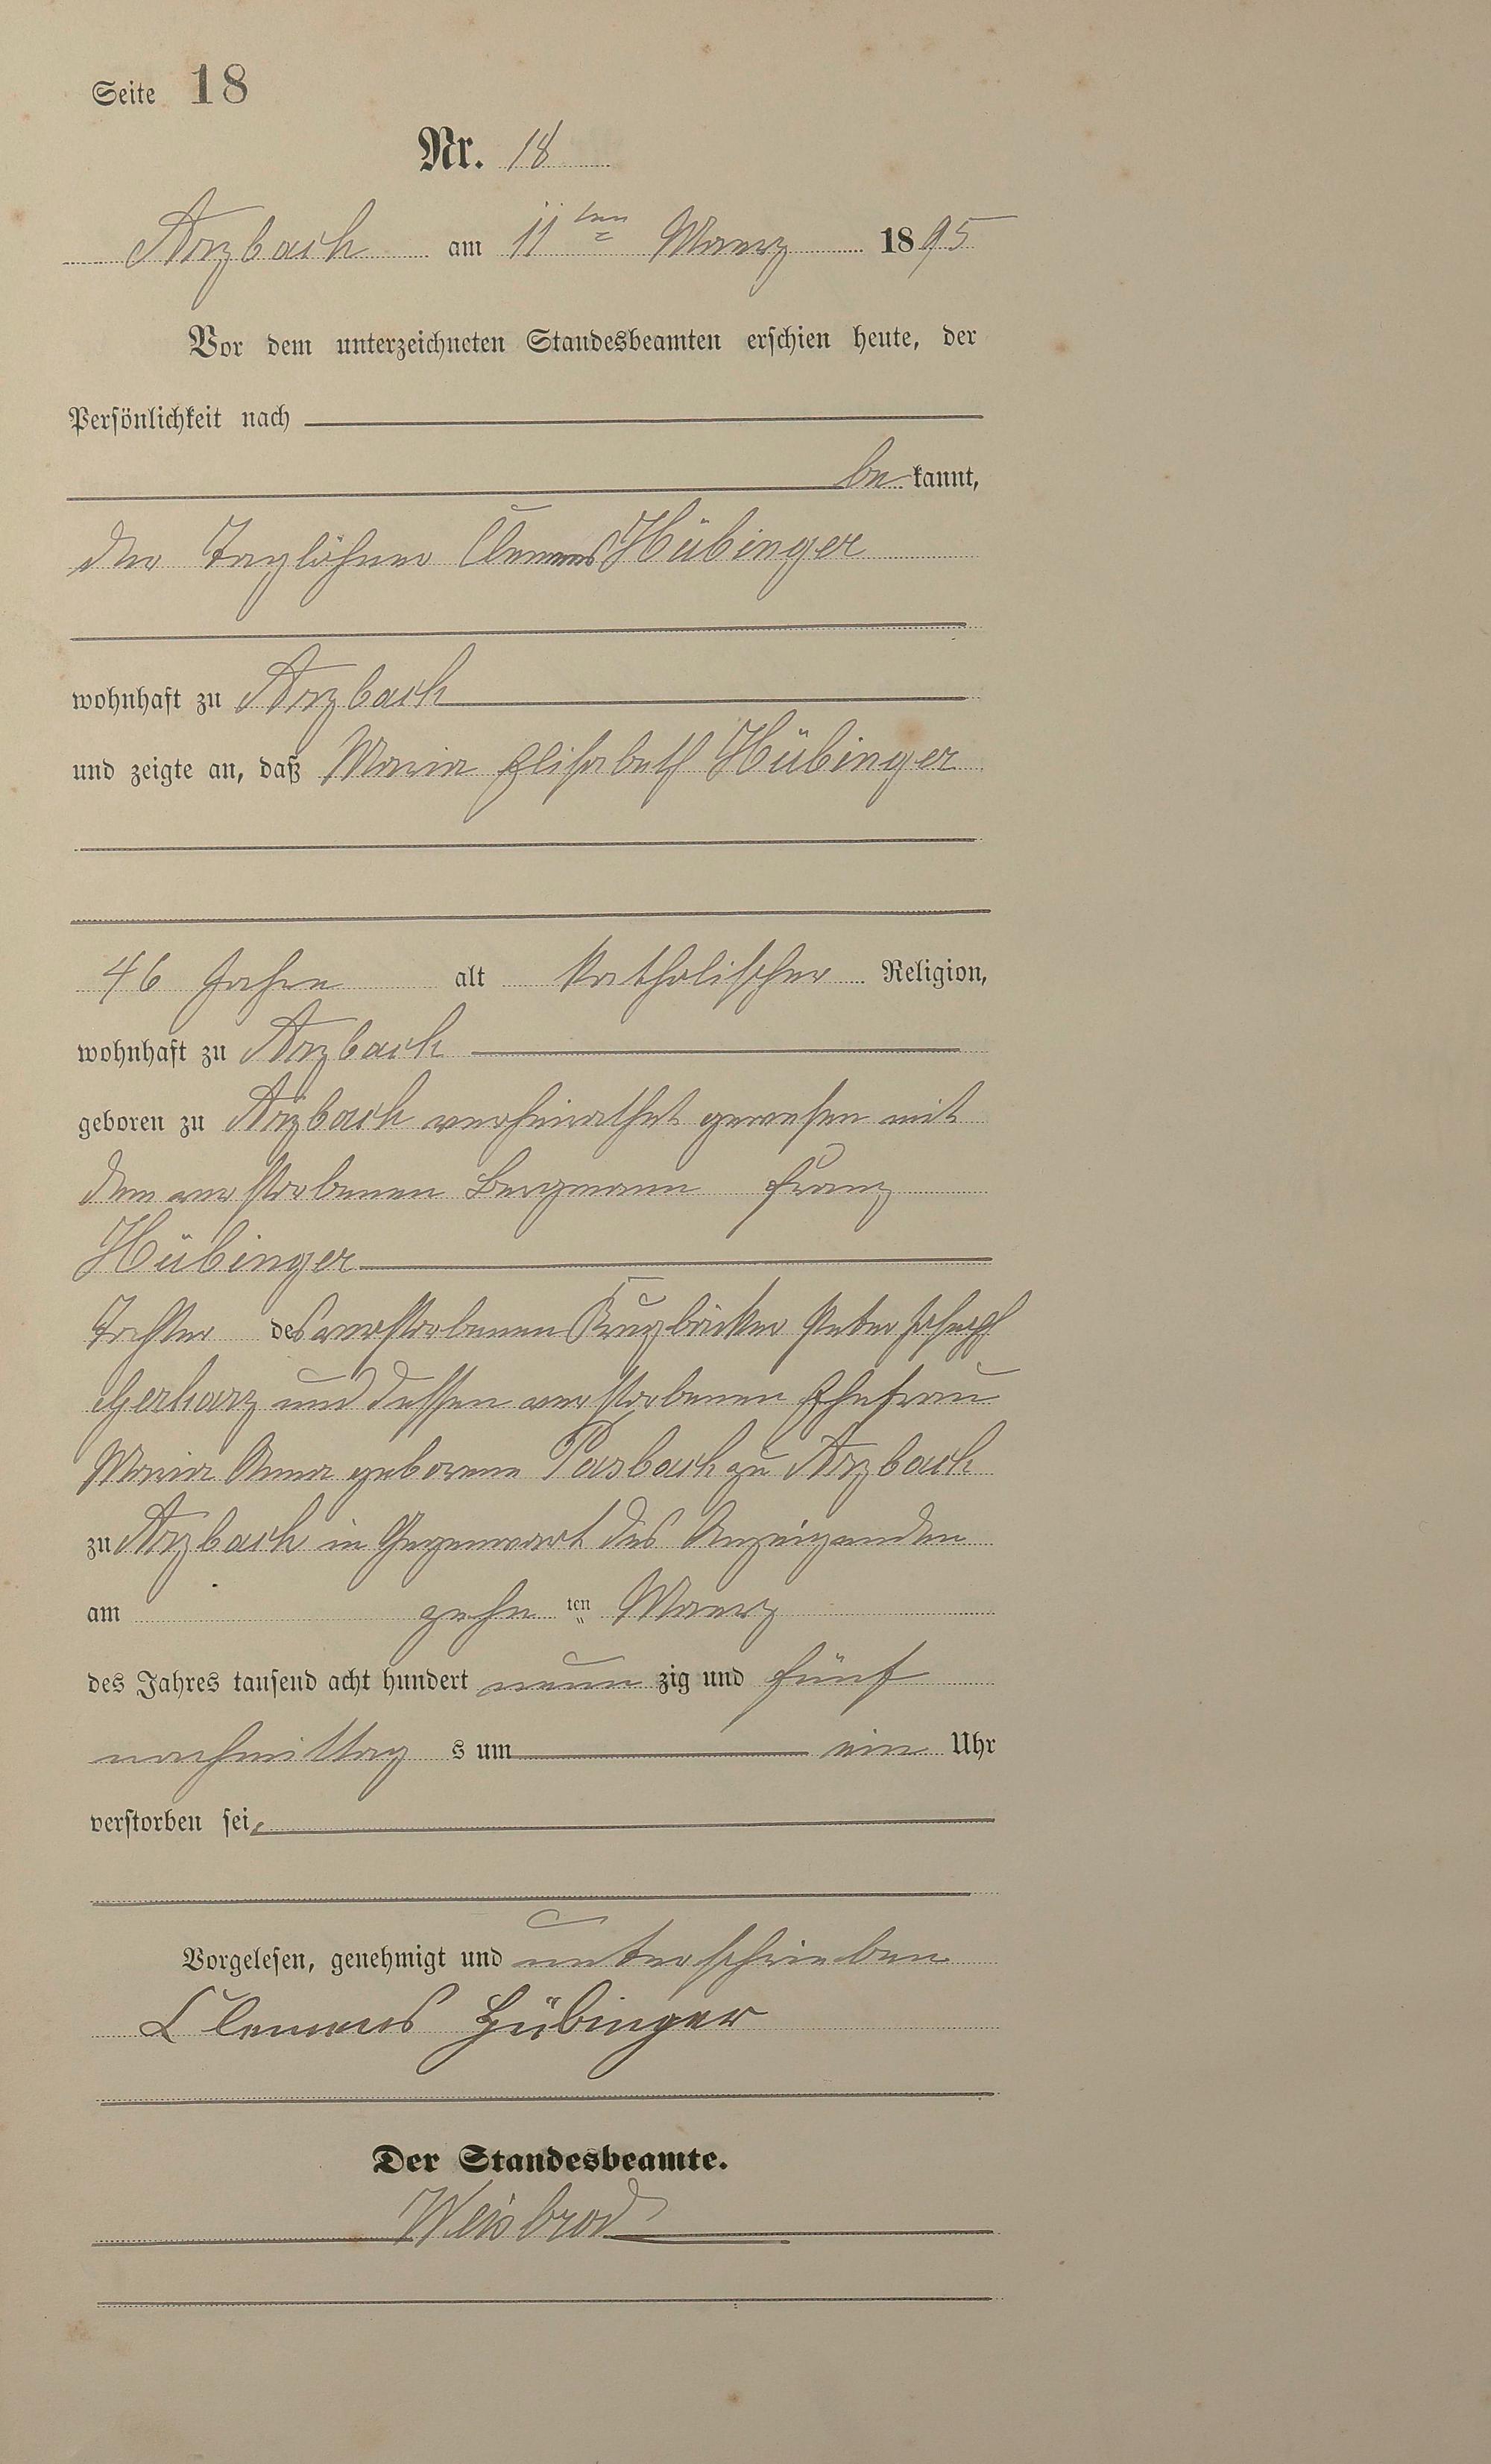 Seite 18
Nr. 18
Arzbach am 11ten Maerz 1895
Vor dem unterzeichneten Standesbeamten erschien heute, der
Persönlichkeit nach
bekannt,
der Taglöhner Clemens Hübinger
wohnhaft zu Arzbach
und zeigte an, daß Maria Elisabeth Hübinger
46 Jahre alt katholischer Religion,
wohnhaft zu Arzbach
geboren zu Arzbach verheirathet gewesen mit
dem verstorbenen Bergmann Franz
Hübinger
Tochter des verstorbenen Krugbäcker Peter Joseph
Gerharz und dessen verstorbenen Ehefrau
Maria Anna geborene Pasbach zu Arzbach
zu Arzbach in Gegenwart des Anzeigenden
am zehn ten Maerz
des Jahres tausend acht hundert neun zig und fünf
nachmittag s um ein Uhr
verstorben sei.
Vorgelesen, genehmigt und unterschrieben
Clemens Hübinger
Der Standesbeamte.
Weisbrod